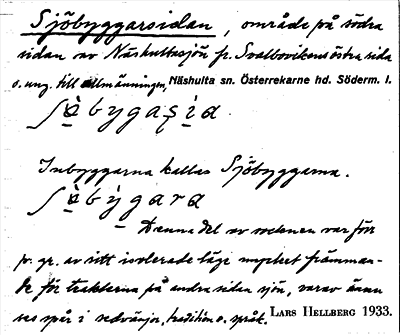 Sjöbyggarsidan, område på södra
sidan av Näshultasjön fr. Svalbovikens östra sida
o. ung. till allmänningen, Näshulta sn. Österrekarne hd. Söderm. l.
Inbyggarna kallas Sjöbyggarna.
Denna del av socknen var förr
på gr. av sitt isolerade läge mycket främman-
de för trakterna på andra sidan sjön, varav ännu
ses spår i sedvänjor, tradition o. språk. LARS HELLBERG 1933.